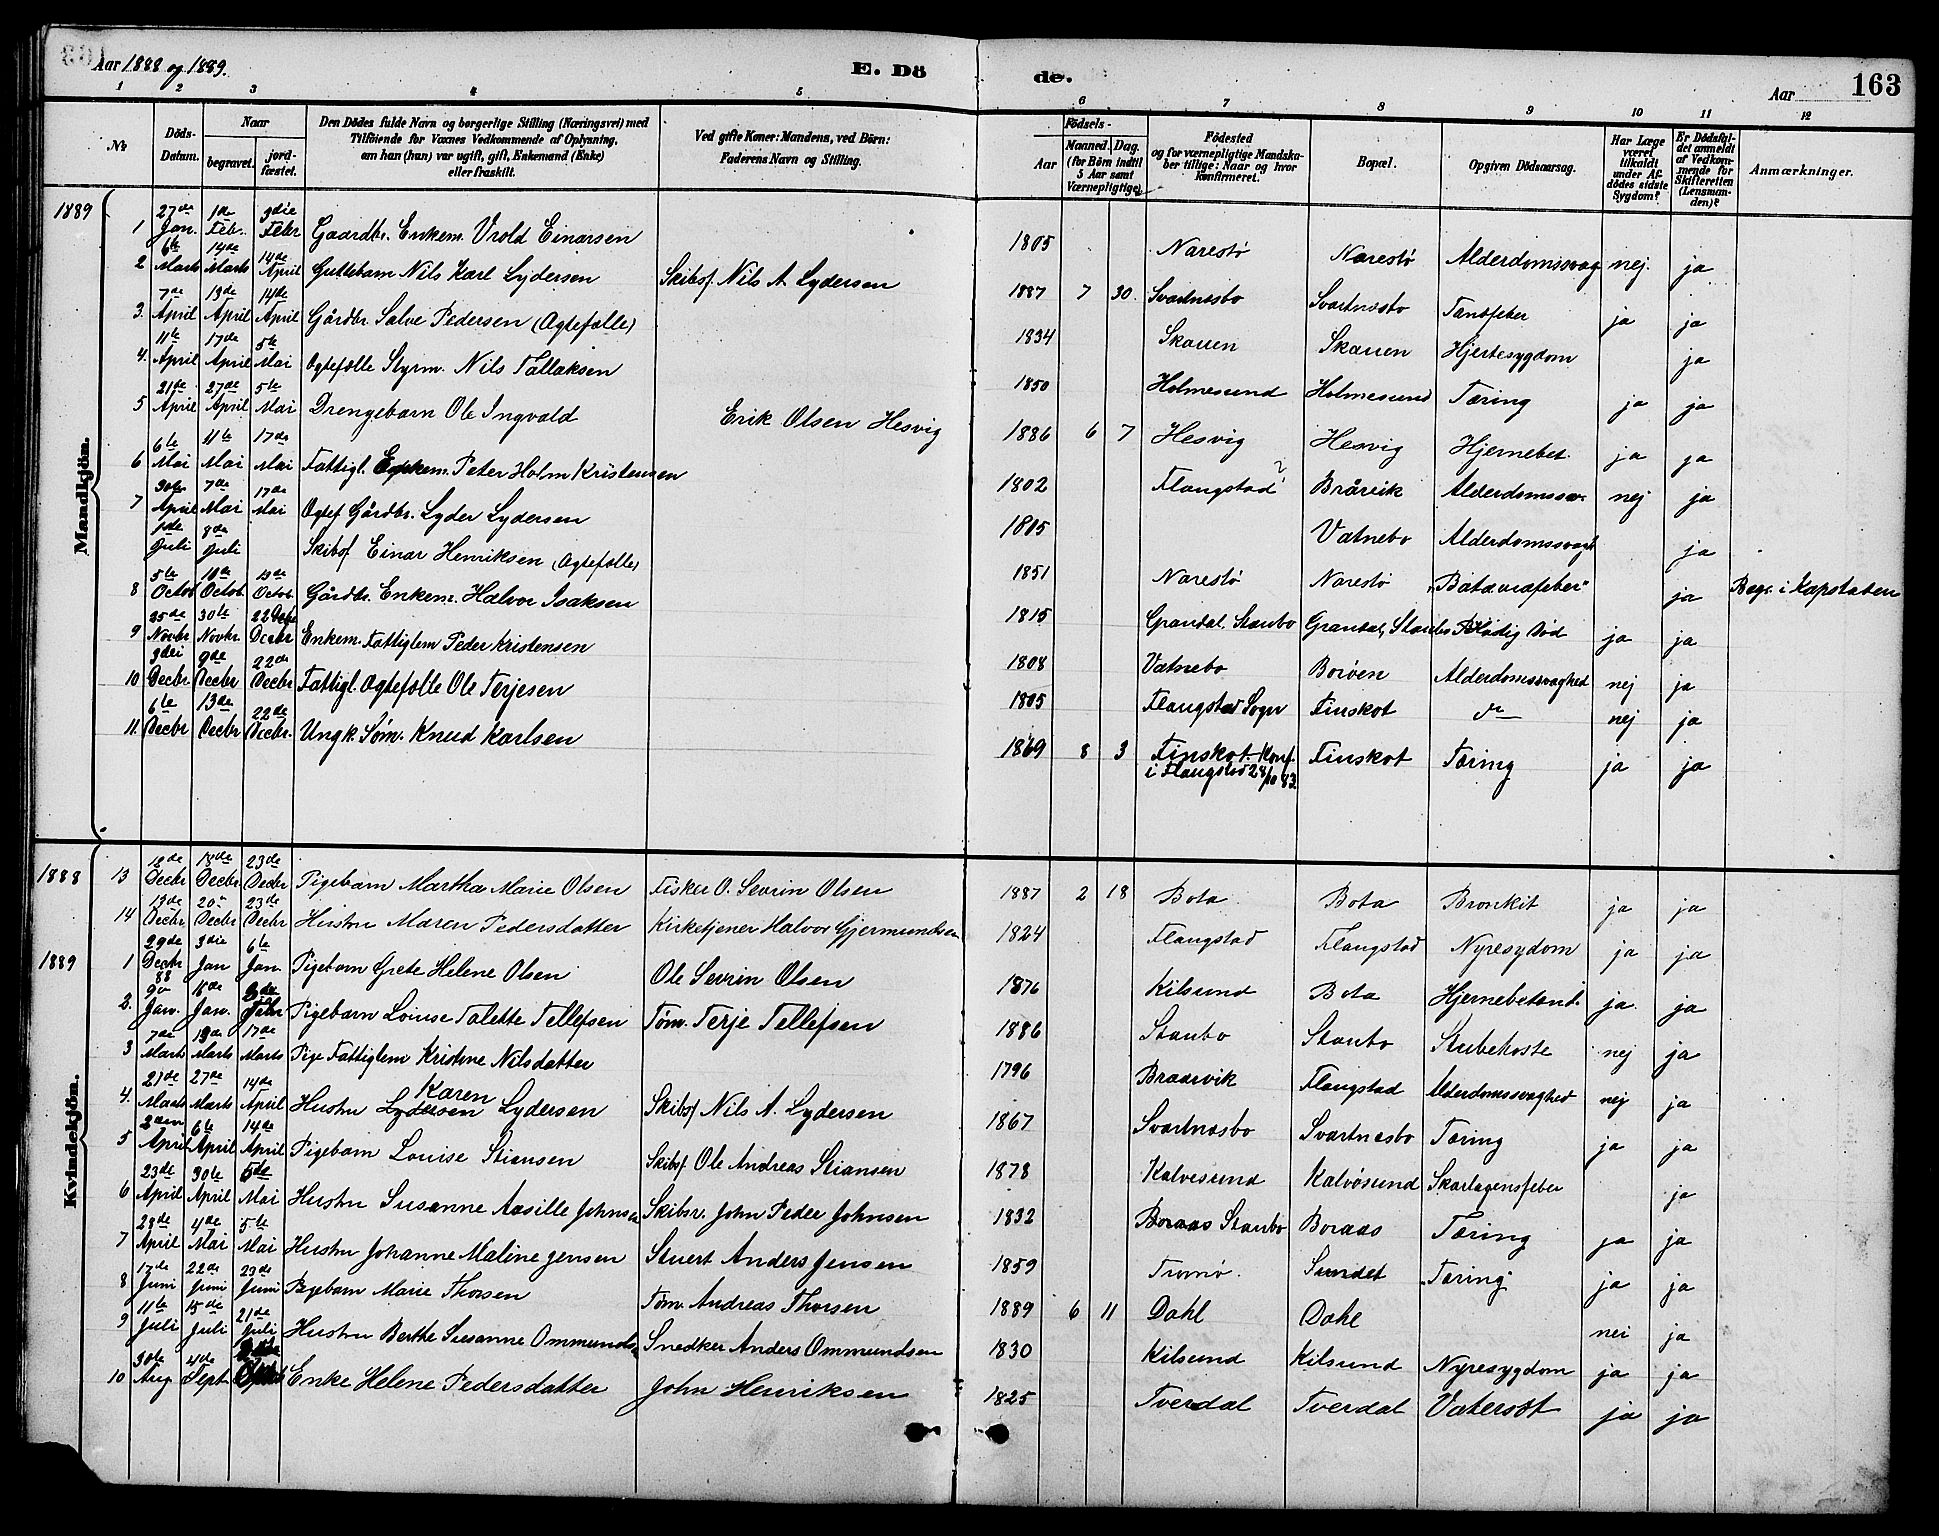 Aar 1888 og 1889. E. Döde. Aar 163
1 2 3 4 5 6 7 8 9 10 11 12
No
Döds-Datum.
Naar
begravet.
jord-fæstet.
Den Dödes fulde Navn og borgerlige Stilling (Næringsvei) med
Tilföiende for Voxnes Vedkommende af Oplysning,
om han (hun) var ugift, gift, Enkemand (Enke)
eller fraskilt.
Ved gifte Koner: Mandens, ved Börn:
Faderens Navn og Stilling.
Födsels-
Aar
Maaned. Dag.
(for Börn indtil
5 Aar samt
Værnepligtige).
Födested
og for værnepligtige Mandska-
ber tillige: Naar og hvor
konfirmeret.
Bopæl.
Opgiven Dödsaarsag.
Har Læge
været
tilkaldt
under Af-
dödes sidste
Sygdom?
Er Dödsfal-
det anmeldt
af Vedkom-
mende for
Skifteretten
(Lensman-
den)?
Anmærkninger.
Mandkjön.
1889 1 27de Jan. 1de Febr. 3die Febr Gaardbr. Enkem. Vrold Einarsen 1805 Narestø Narestø Alderdomssvag nej. ja
2 6te Marts 14de Marts 14de April Guttebarn Nils Karl Lydersen Skibsf. Nils A Lydersen 1887 7 30. Svartnesbo Svartnesbo Tandfeber ja ja
3. 7de April 13de April 14de April Gårdbr. Salve Pedersen (Ægtefælle) 1834 Skauen Skauen Hjertesygdom ja
4. 11te April 17de April 5te Mai Ægtefælle Styrm. Nils Tallaksen 1850 Holmesund Holmesund Tæring ja ja
5 21de April 27de April 5te Mai Drengebarn Ole Ingvald Erik Olsen Hesvig 1886 6 7 Hesvig Hesvig Hjernebet. ja ja
6 6te Mai 11te Mai 17de Mai Fattigl. Enkem. Peter Holm Kristensen 1802 Flangstad? Bråvik Alderdomssv. nej ja
7 30te April 7de Mai 17de Mai Ægtef Gårdbr. Lyder Lydersen 1805 Vatnebo Alderdomssvagh ja
1de Juli 8de Juli Skibsf Einar Henriksen (Ægtefælle) 1851 Narestø Narestø "Bataviafeber" ja Begr. i Kapstaden
8 5te Octob 10de Octob. 13de Octob. Gårdbr. Enkem. Halvor Isaksen 1815 Grandal. Staubo Grandal, Staubo Hådig Død ja ja
9 25de Novbr 30te Novbr 22 Decbr Enkem. Fattiglem Peder Kristensen 1808 Vatnebo Borøen Alderdomssvaghed nej ja
10 3dei Decbr 9de Decbr 22de Decbr Fattigl. Ægtefælle Ole Terjesen 1805 Flangstad Sogn Finskot do nej ja
11. 6te Decbr 13de Decbr 22de Decbr. Ungk. Søm. Knud Karlsen 1869 8 3 Finskot. Konf. i Flangstad 24/10 83. Finskot Tæring ja ja
Kvindekjön.
1888 13 12de Decbr 18de Decbr 23de Decbr Pigebarn Martha Marie Olsen Fisker O. Sevrin Olsen 1887 2 18 Bota Bota Bronkit ja ja
14 13de Decbr 20de Decbr 23de Decbr Hustru Maren Pedersdatter Kirketjener Halvor Gjermundsen 1824 Flangstad Flangstad Nyresydom ja ja
1889 1 29de Decbr 88 3die Jan 6te Jan. Pigebarn Grete Helene Olsen Ole Sevrin Olsen 1876 Kilsund Bota Hjernebetænd. ja. ja
2. 9de Jan. 18de Jan. Febr Pigebarn Louise Talette Tellefsen Tøm. Terje Tellefsen 1886 Staubo Staubo Strubehoste nej ja
3 7de Marts 13de Marts 17de Marts Pige Fattiglem Kristine Nilsdatter 1796 Braarvik Flangstad Alderdomssvaghed nej ja
4. 21de Marts 27de Marts 14de April Hustru Karen Lydersen Lydersen Skibsf Nils A. Lydersen 1867 Svartnesbo Svartnesbo Tæring ja ja
5 2den April 6te April 14de April Pigebarn Louise Stiansen Skibsf. Ole Andreas Stiansen 1878 Kalvesund Kalvøsund Skarlagensfeber ja
6 23de April 30te April 5te Mai Hustru Susanne Aasille Johnsen Skibsr. John Peder Johnsen 1832 Boraas Staubo Boraas Tæring ja ja
7 28de April 4de Mai 5te Mai Hustru Johanne Maline Jensen Stuert Anders Jensen 1859 Tromø. Sundet Tæring ja ja
8 17de Juni 22de Juni 23de Juni Pigebarn Marie Thorsen Tøm. Andreas Thorsen 1889 6 11 Dahl Dahl nei ja
9 11te Juli 15de Juli 21de Juli Hustru Berthe Susanne Ommunds Snedker Anders Ommundsen 1830 Kilsund Kilsund Nyresygdom ja ja
10 30te Aug 4de Sept Enke Helene Pedersdatter John Henriksen 1825 Tverdal Tverdal Vatersot ja ja